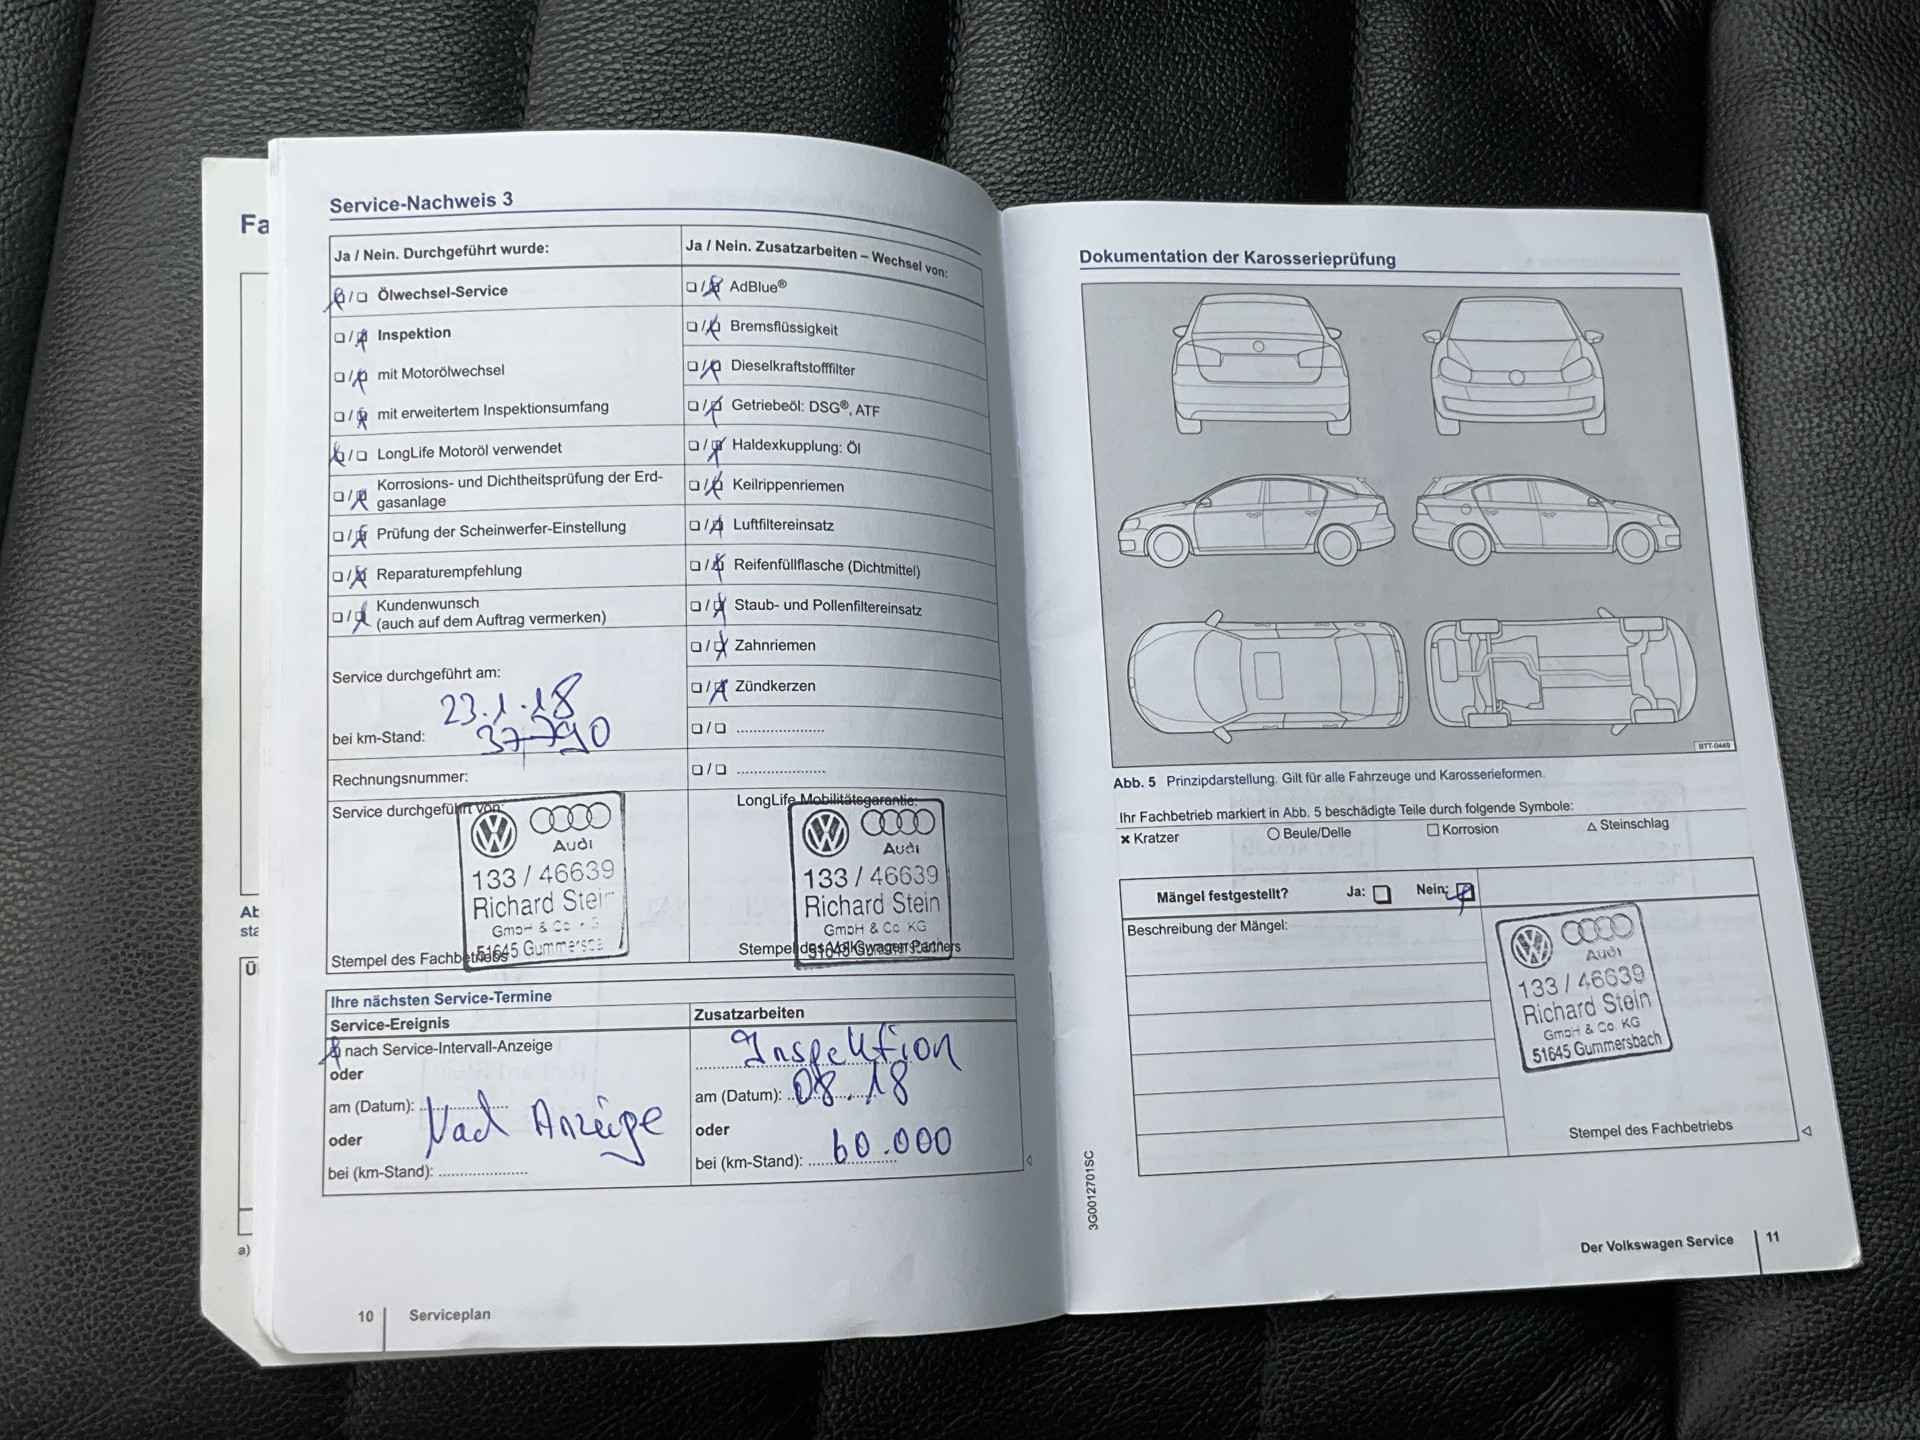 Fa
Ab
sta
Ü
a)
Service-Nachweis 3
Ja / Nein. Durchgeführt wurde:
Ölwechsel-Service
Inspektion
mit Motorölwechsel
mit erweitertem Inspektionsumfang
LongLife Motoröl verwendet
Korrosions- und Dichtheitsprüfung der Erd-
gasanlage
Prüfung der Scheinwerfer-Einstellung
Reparaturempfehlung
Kundenwunsch
(auch auf dem Auftrag vermerken)
Service durchgeführt am:
23.1.18
bei km-Stand: 37790
Rechnungsnummer:
Service durchgeführt von:
Audi
133 / 46639
Richard Stein
GmbH & Co
51645 Gummersba
Stempel des Fachbetriebs
Ja / Nein. Zusatzarbeiten – Wechsel von:
AdBlue®
Bremsflüssigkeit
Dieselkraftstofffilter
Getriebeöl: DSG®, ATF
Haldexkupplung: Öl
Keilrippenriemen
Luftfiltereinsatz
Reifenfüllflasche (Dichtmittel)
Staub- und Pollenfiltereinsatz
Zahnriemen
Zündkerzen
LongLife Mobilitätsgarantie:
Audi
133 / 46639
Richard Stein
GmbH & Co KG
51645 Gummersbach
Stempel des Volkswagen Partners
Ihre nächsten Service-Termine
Service-Ereignis
nach Service-Intervall-Anzeige
oder
am (Datum):
Nach Anzeige
oder
bei (km-Stand):
Zusatzarbeiten
Inspektion
am (Datum): 08.18
oder
bei (km-Stand): 60.000
10 Serviceplan
Dokumentation der Karosserieprüfung
BTT-0449
Abb. 5 Prinzipdarstellung. Gilt für alle Fahrzeuge und Karosserieformen.
Ihr Fachbetrieb markiert in Abb. 5 beschädigte Teile durch folgende Symbole:
Kratzer Beule/Delle Korrosion Steinschlag
Mängel festgestellt? Ja: Nein:
Beschreibung der Mängel:
Audi
133 / 46639
Richard Stein
GmbH & Co. KG
51645 Gummersbach
Stempel des Fachbetriebs
3G0012701SC
Der Volkswagen Service 11